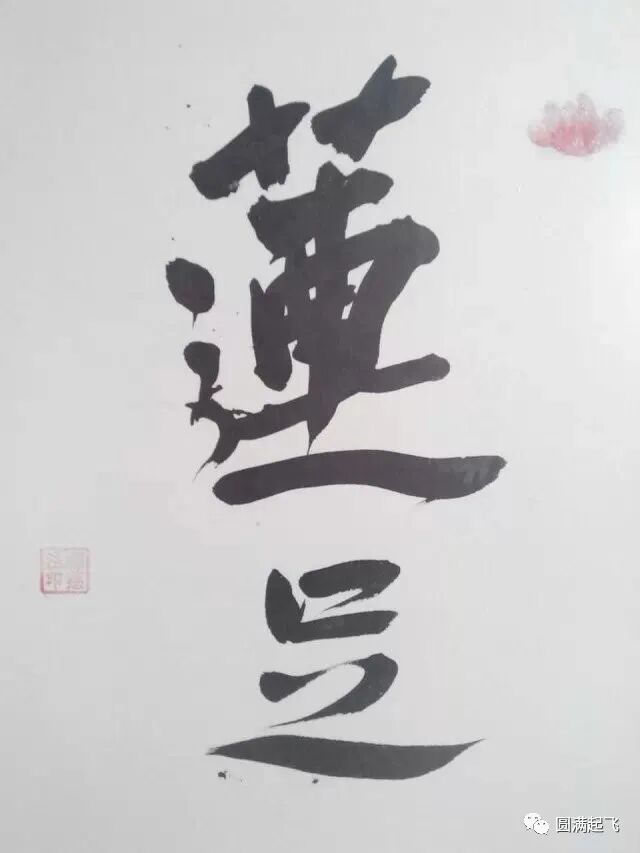 蓮足
圆满起飞